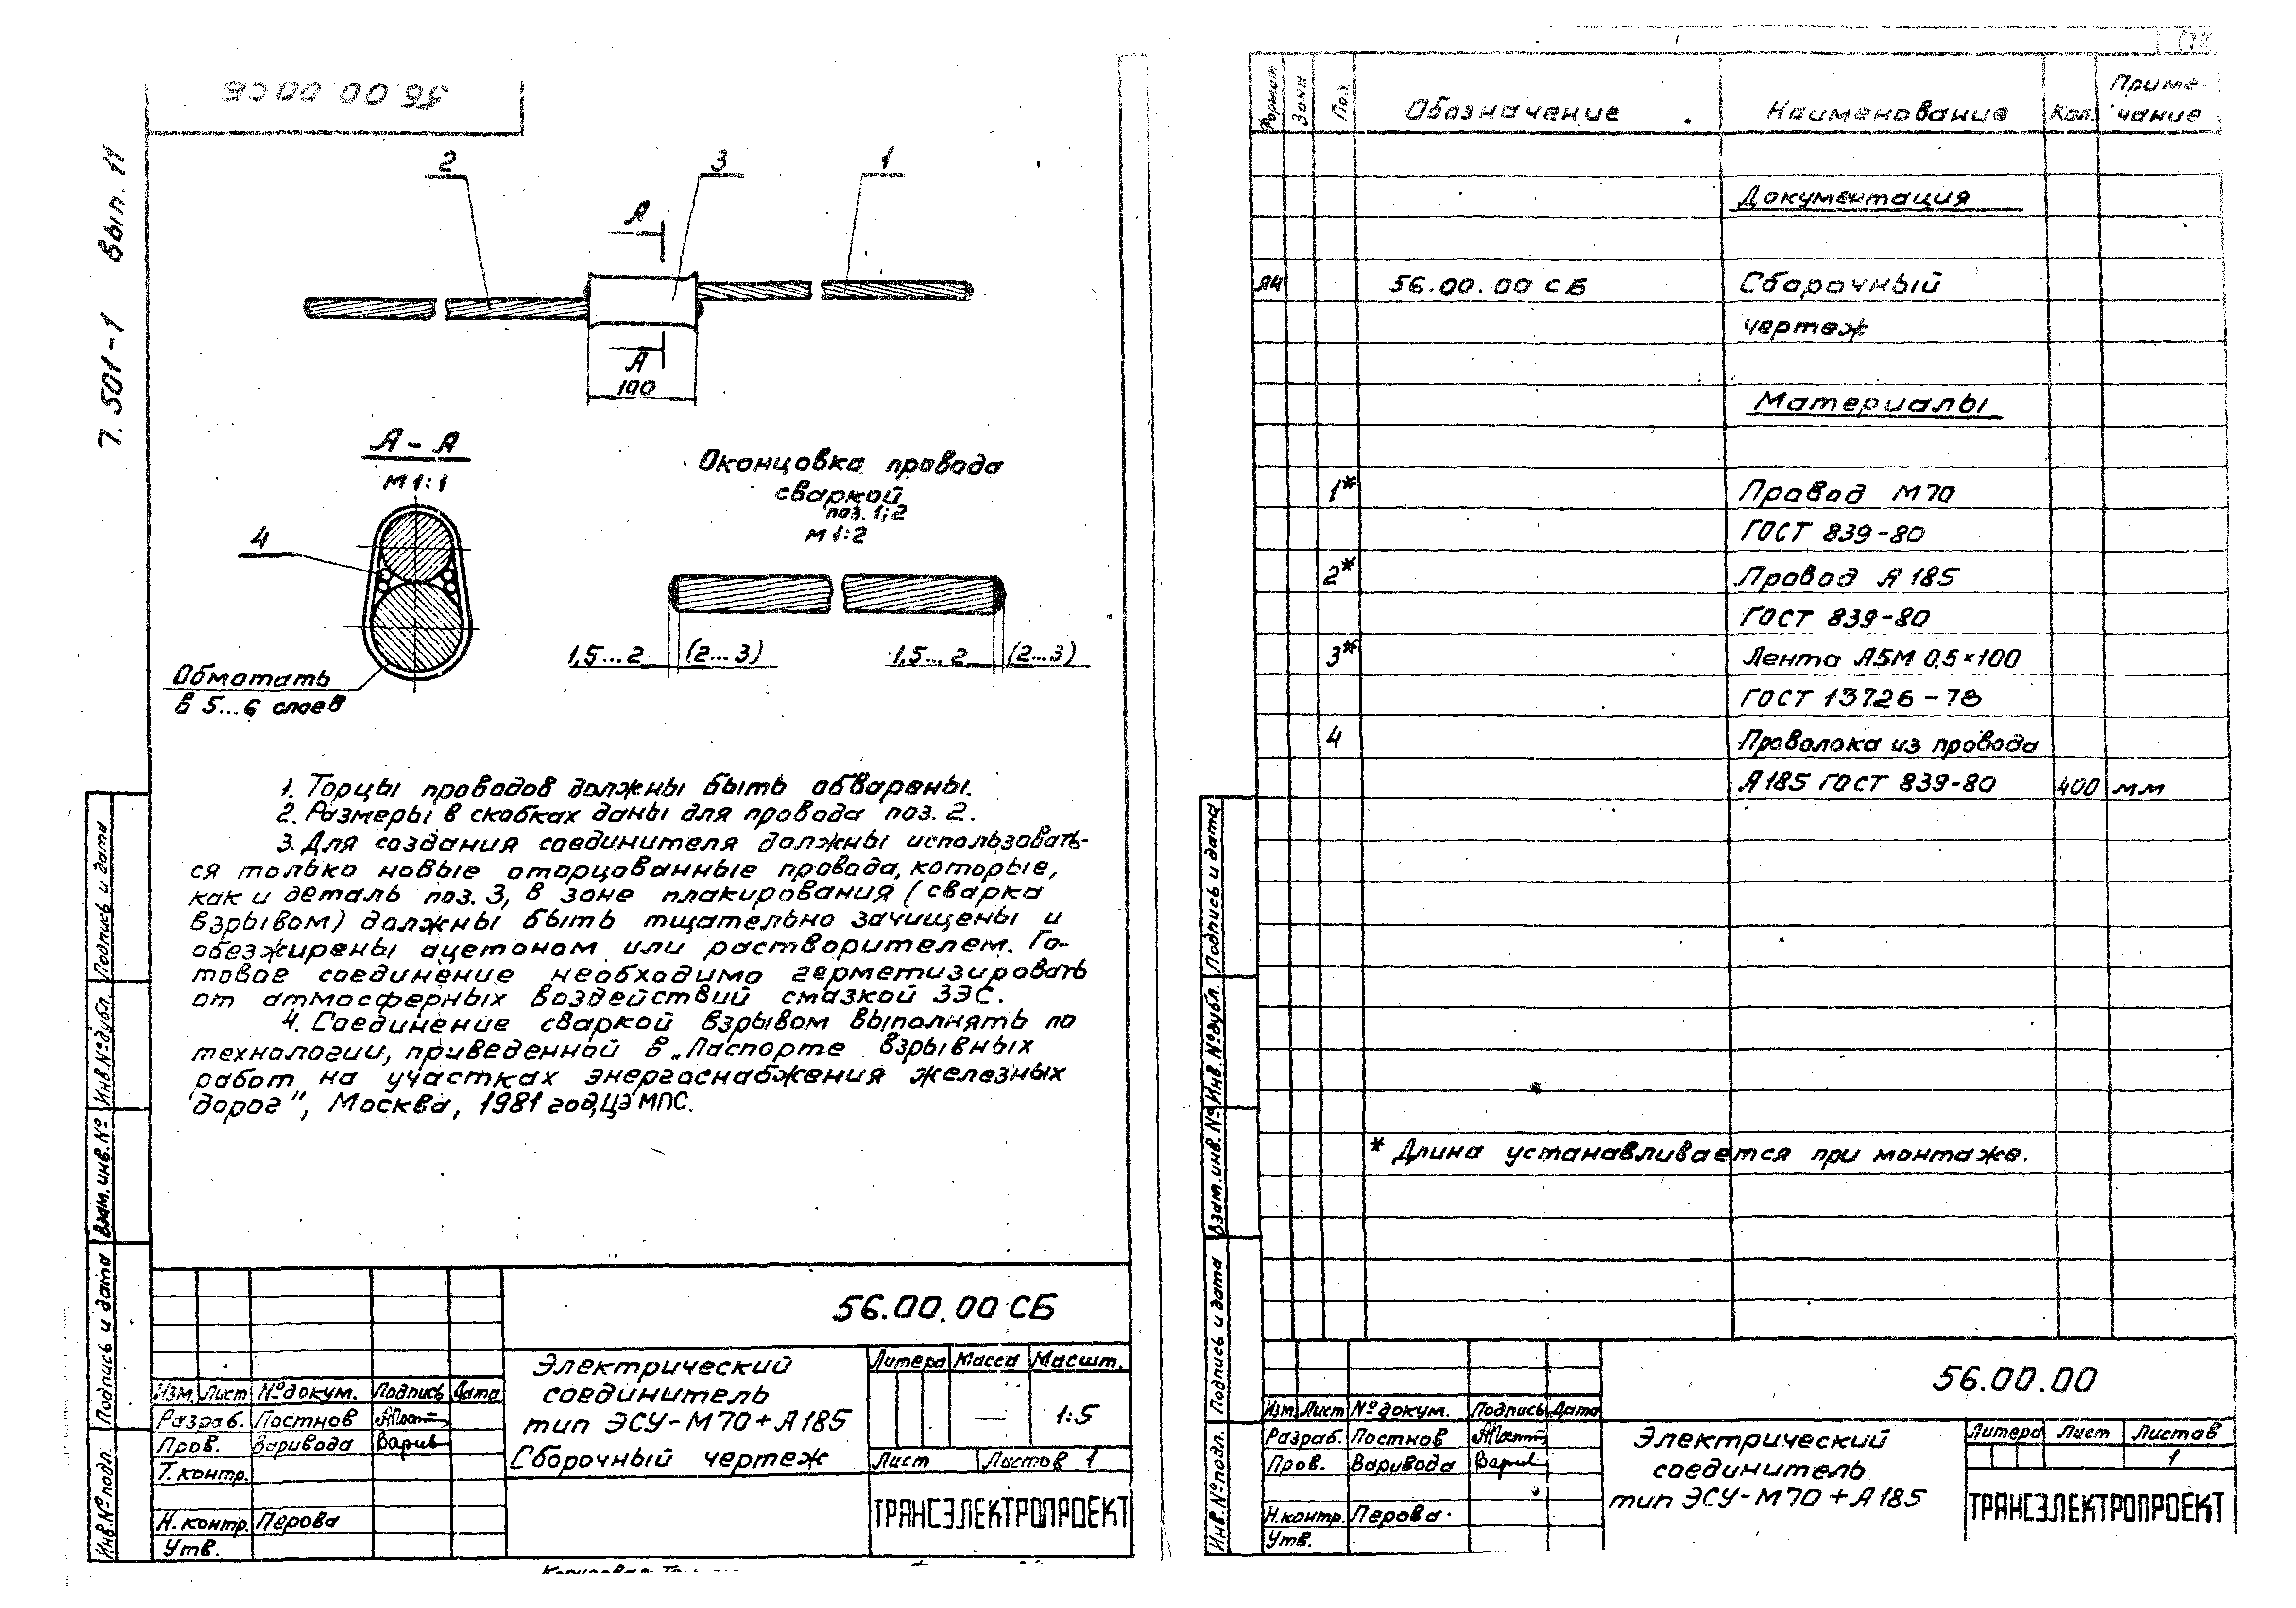 56.00.00 СБ
7.501-1 Вып. 11
2
3
1
А
А
100
А - А
М 1:1
4
Обмотать
в 5...6 слоев
Оконцовка провода
сваркой
поз. 1; 2
М 1:2
1,5...2 (2...3)
1,5...2 (2...3)
1. Торцы проводов должны быть обварены.
2. Размеры в скобках даны для провода поз. 2.
3. Для создания соединителя должны использовать-
ся только новые оторцованные провода, которые,
как и деталь поз. 3, в зоне плакирования (сварка
взрывом) должны быть тщательно зачищены и
обезжирены ацетоном или растворителем. Го-
товое соединение необходимо герметизировать
от атмосферных воздействий смазкой ЗЭС.
4. Соединение сваркой взрывом выполнять по
технологии, приведенной в „Паспорте взрывных
работ на участках энергоснабжения железных
дорог", Москва, 1981 год, ЦЭ МПС.
Подпись и дата
Инв.№ дубл.
Взам. инв. №
Подпись и дата
Инв.№ подл.
56.00.00 СБ
Электрический
соединитель
тип ЭСУ-М70+А185
Сборочный чертеж
Литера Масса Масшт.
— 1:5
Лист Листов 1
ТРАНСЭЛЕКТРОПРОЕКТ
Изм. Лист № докум. Подпись Дата
Разраб. Постнов
Пров. Варивода
Т. контр.
Н. контр. Перова
Утв.
Формат Зона Поз. Обозначение Наименование Кол. Приме-
чание
Документация
А4 56.00.00 СБ Сборочный
чертеж
Материалы
1* Провод М70
ГОСТ 839-80
2* Провод А 185
ГОСТ 839-80
3* Лента А5М 0,5×100
ГОСТ 13726-78
4 Проволока из провода
А185 ГОСТ 839-80 400 мм
* Длина устанавливается при монтаже.
Подпись и дата
Инв.№ дубл.
Взам. инв. №
Подпись и дата
Инв.№ подл.
56.00.00
Изм. Лист № докум. Подпись Дата
Разраб. Постнов
Пров. Варивода
Н. контр. Перова
Утв.
Электрический
соединитель
тип ЭСУ-М70+А185
Литера Лист Листов
1
ТРАНСЭЛЕКТРОПРОЕКТ